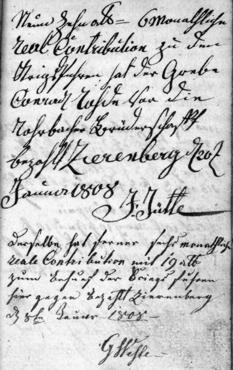 Neun Zehn alb= 6 Monathliche
real Contribution zu den
Kriegsfuhren hat der Grebe
Conrad Rohde vor die
Rohrbacher Bruderschafft
bezahlt Zierenberg d 20t
Januar 1808
J. Jütte
Derselbe hat ferner sechs monathliche
reale Contribution mit 19 alb
zum Behuf der Kriegs fuhren
hier gegen bezahlt Zierenberg
d 8t Januar 1808.